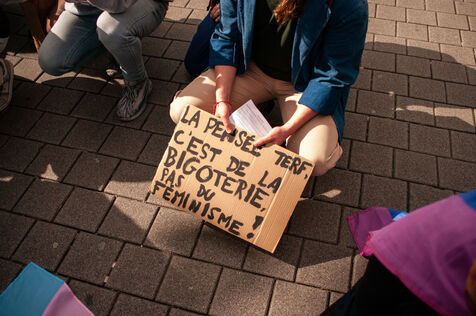 LA PENSÉE TERF
C'EST DE LA
BIGOTERIE,
PAS DU
FÉMINISME!